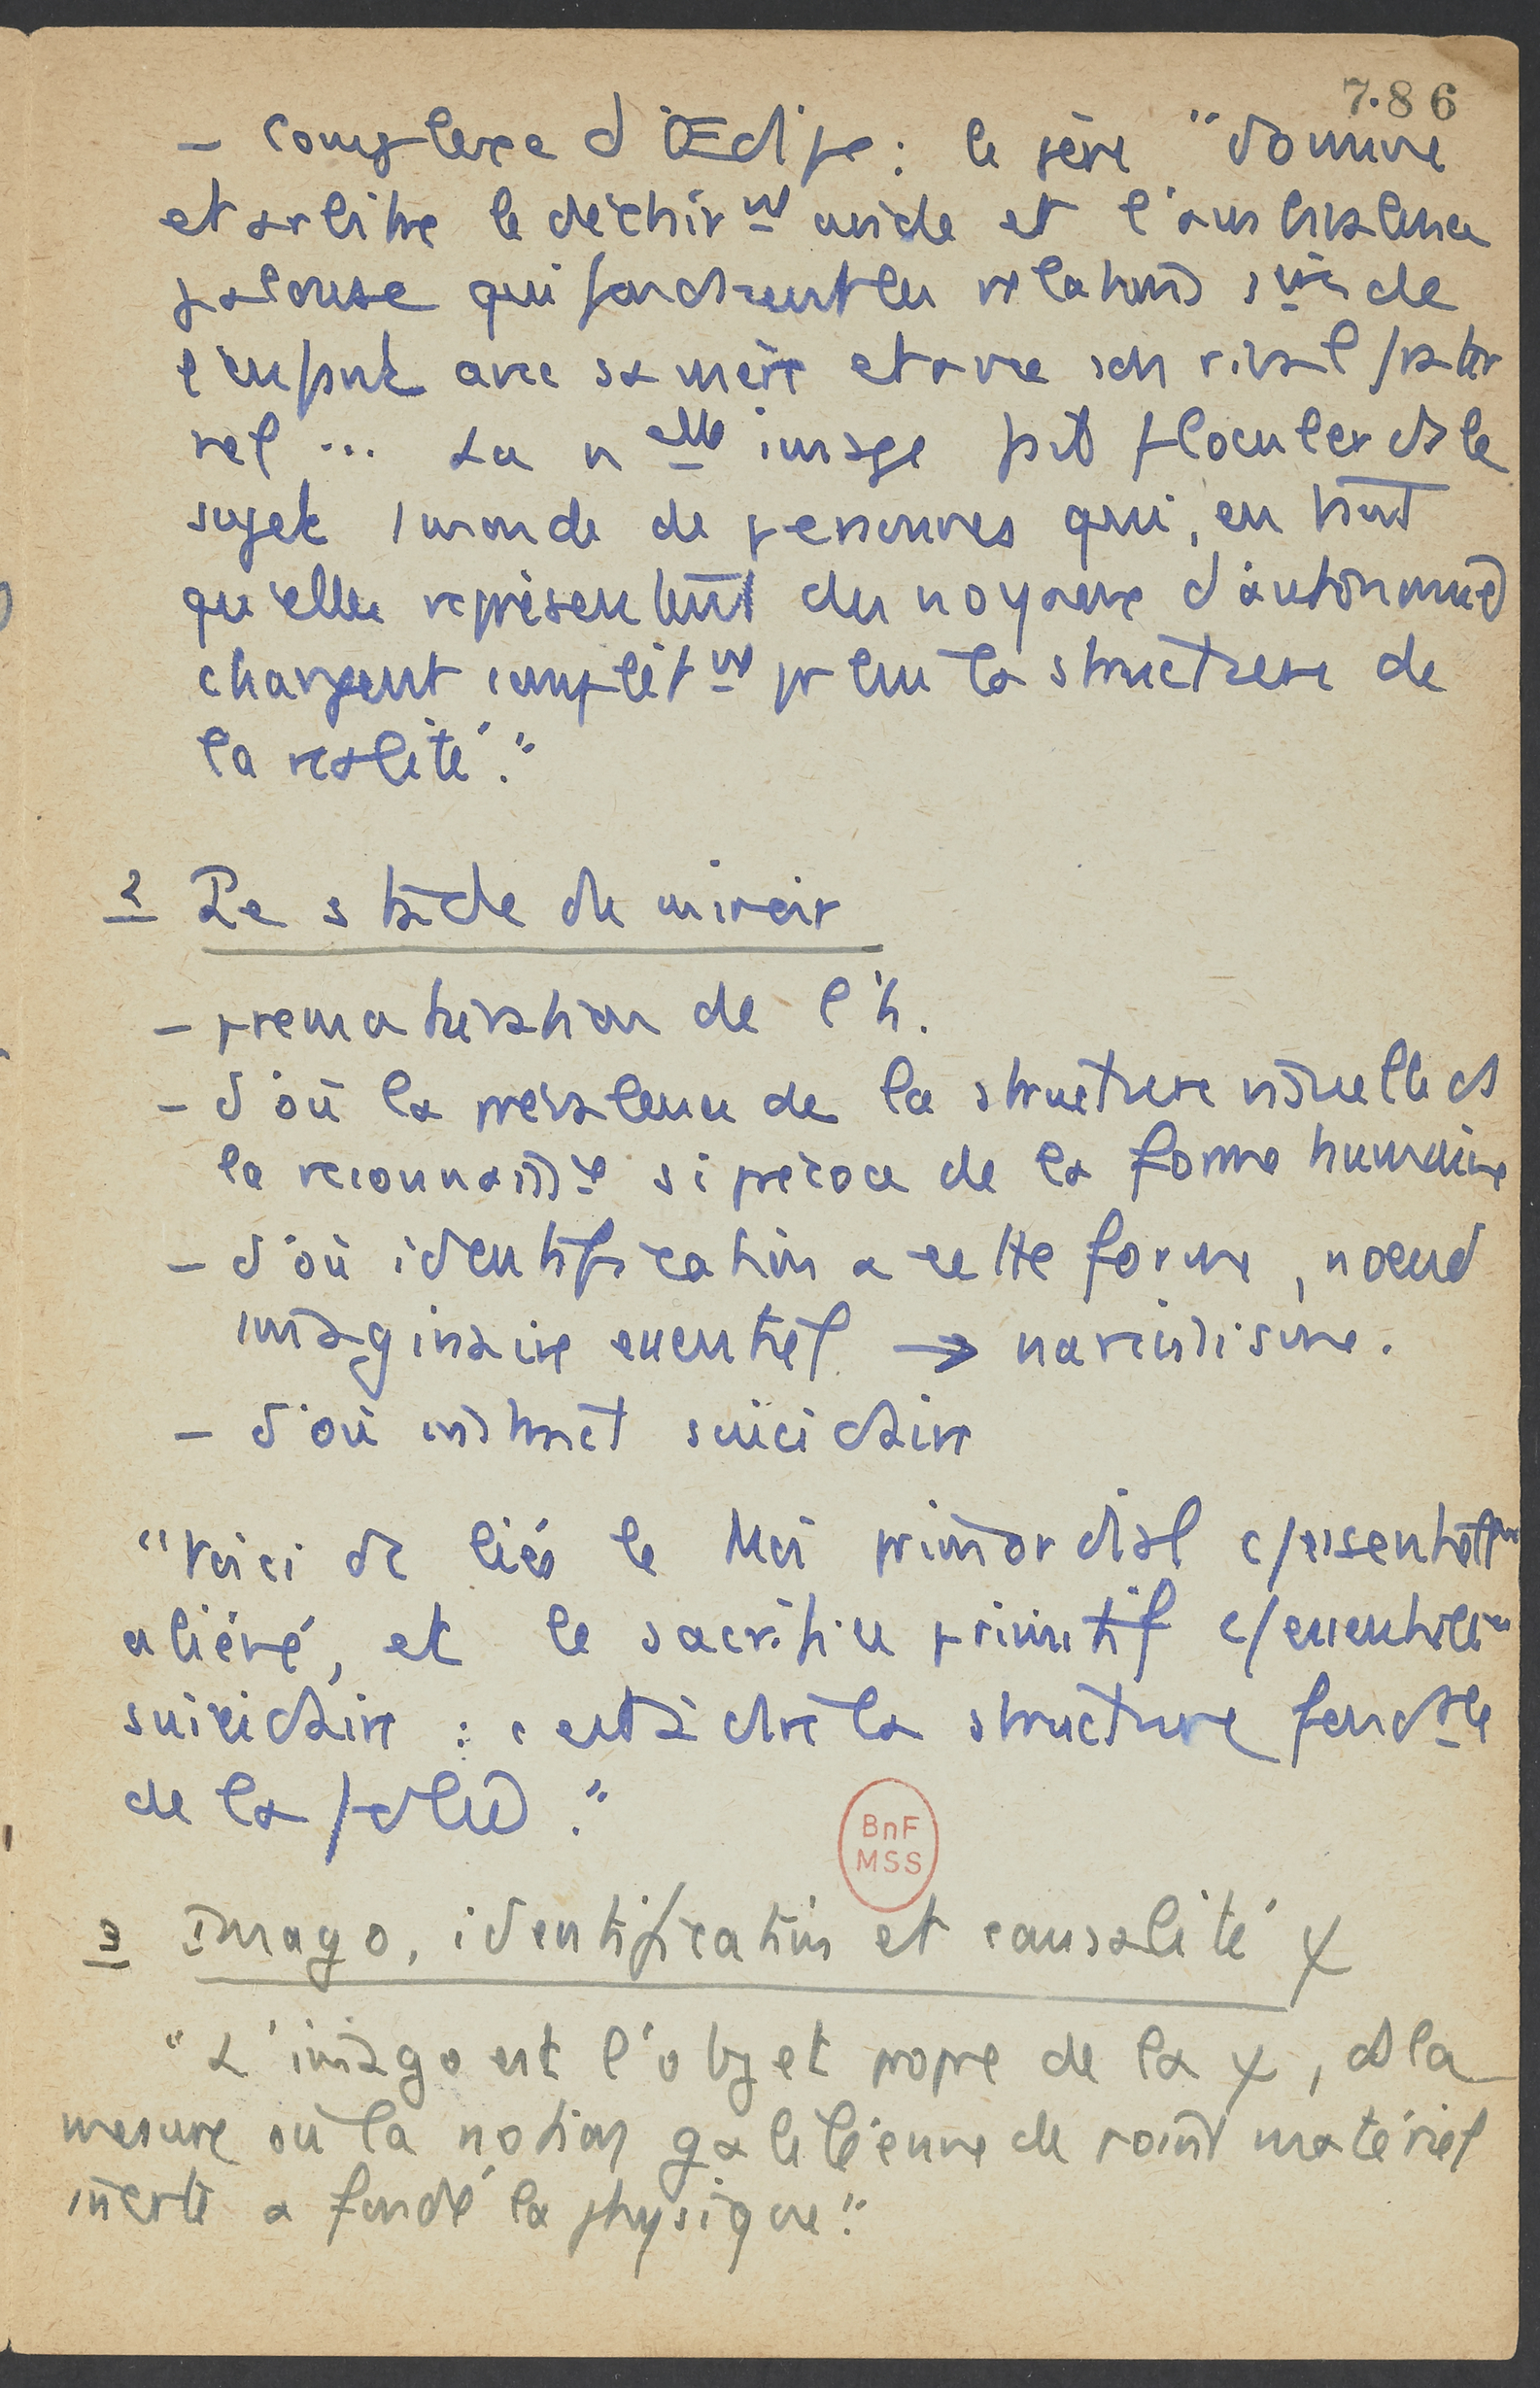 786
– Complexe d'Œdipe : le père "domine
et arbitre le déchirnt avide et l'ambivalence
jalouse qui fondaient les relations 1ères de
l'enfant avec sa mère et avec son rival frater
nel ... La nelle image fait floculer ds le
sujet 1 monde de personnes qui, en tant
qu'elles représentent des noyaux d'autonomie
changent complètnt pr lui la structure de
la réalité."
2 Le stade du miroir
– prématuration de l'h.
– d'où la prévalence de la structure visuelle ds
la reconnaissce si précoce de la forme humaine
– d'où identification à cette forme, nœud
imaginaire essentiel → narcissisme.
– d'où instinct suicidaire
"Voici dc liés le Moi primordial c/essentiellt
aliéné, et le sacrifice primitif c/essentiellt
suicidaire : c'est à dire la structure fondale
de la folie."
3 Imago, identification et causalité ψ
"L'imago est l'objet propre de la ψ, ds la
mesure où la notion galiléenne de point matériel
inerte a fondé la physique."
BnF
MSS